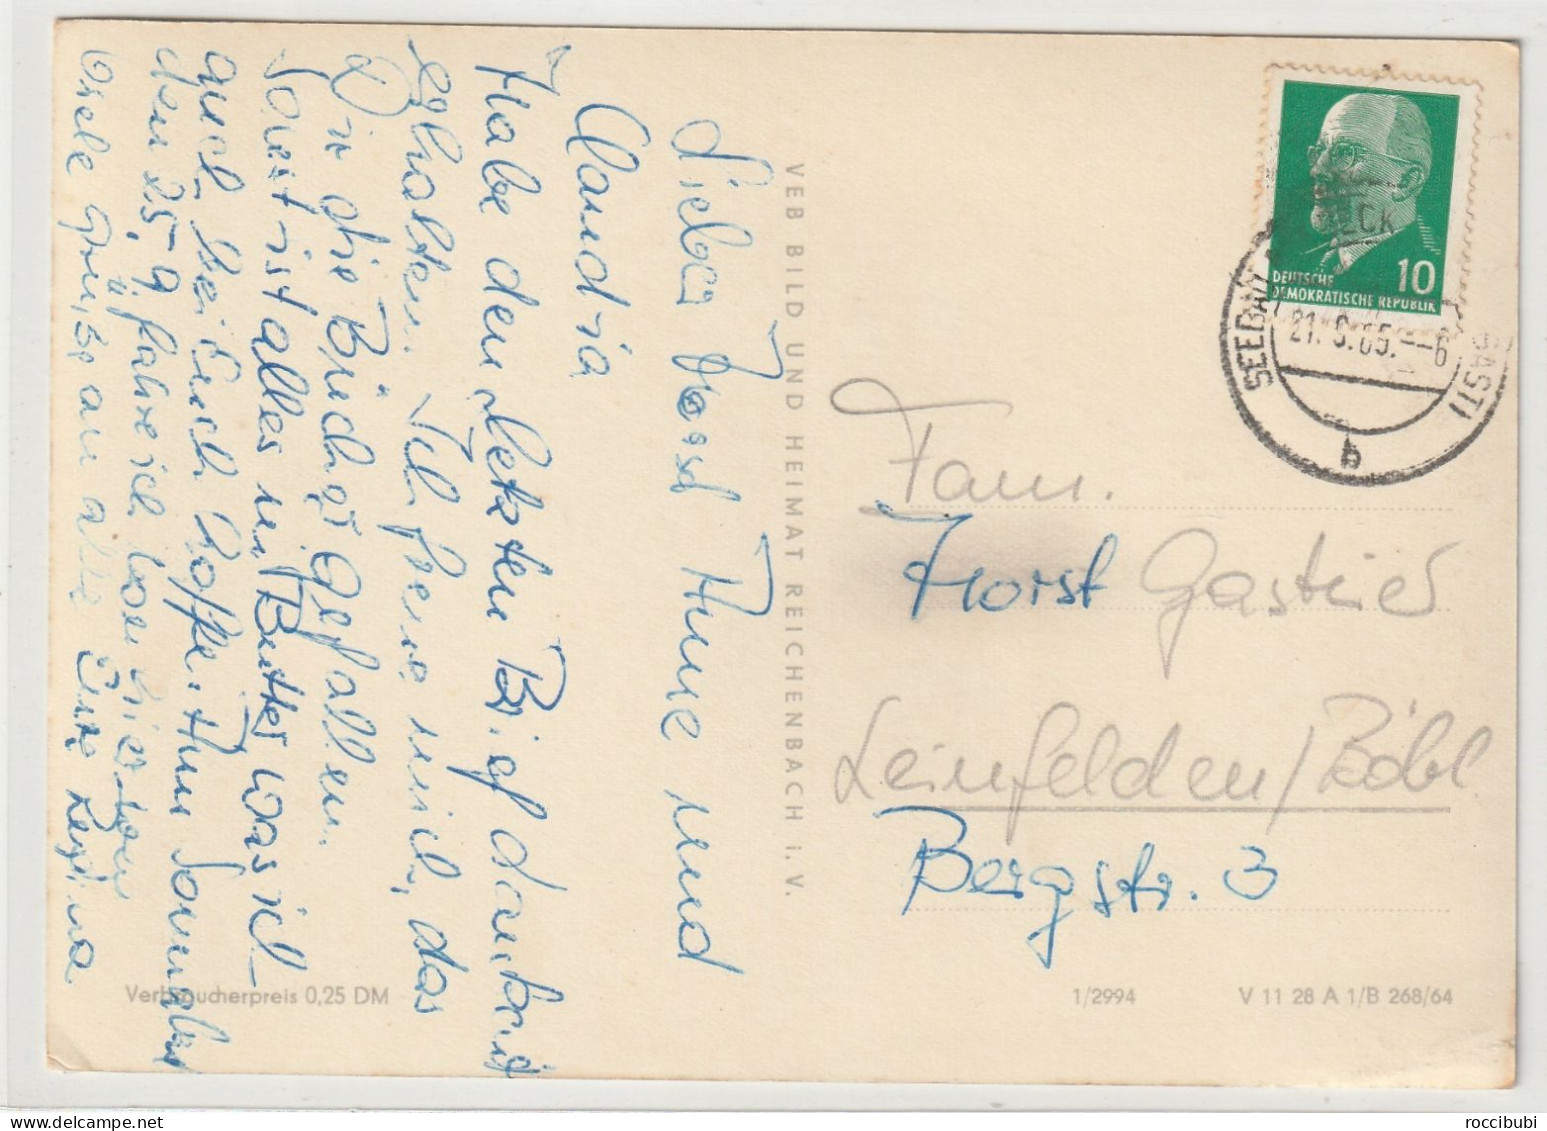 Lieber Horst Anne und
Claudia
Habe den letzten Brief dankend
erhalten. Ich freue mich, das
Dir die Bücher gefallen.
Sonst ist alles in Butter was ich
auch bei Euch hoffe. Am Sonnabend
den 25.9 fahre ich von hier
viele Grüße an alle Eure Regina
VEB BILD UND HEIMAT REICHENBACH I.V.
DEUTSCHE
DEMOKRATISCHE REPUBLIK
10
SEEBAD
21.9.65.
6
b
Fam.
Horst Gastier
Leinfelden/Böbl.
Bergstr. 3
Verbraucherpreis 0,25 DM
1/2994
V 11 28 A 1/B 268/64
www.delcampe.net
roccibubi